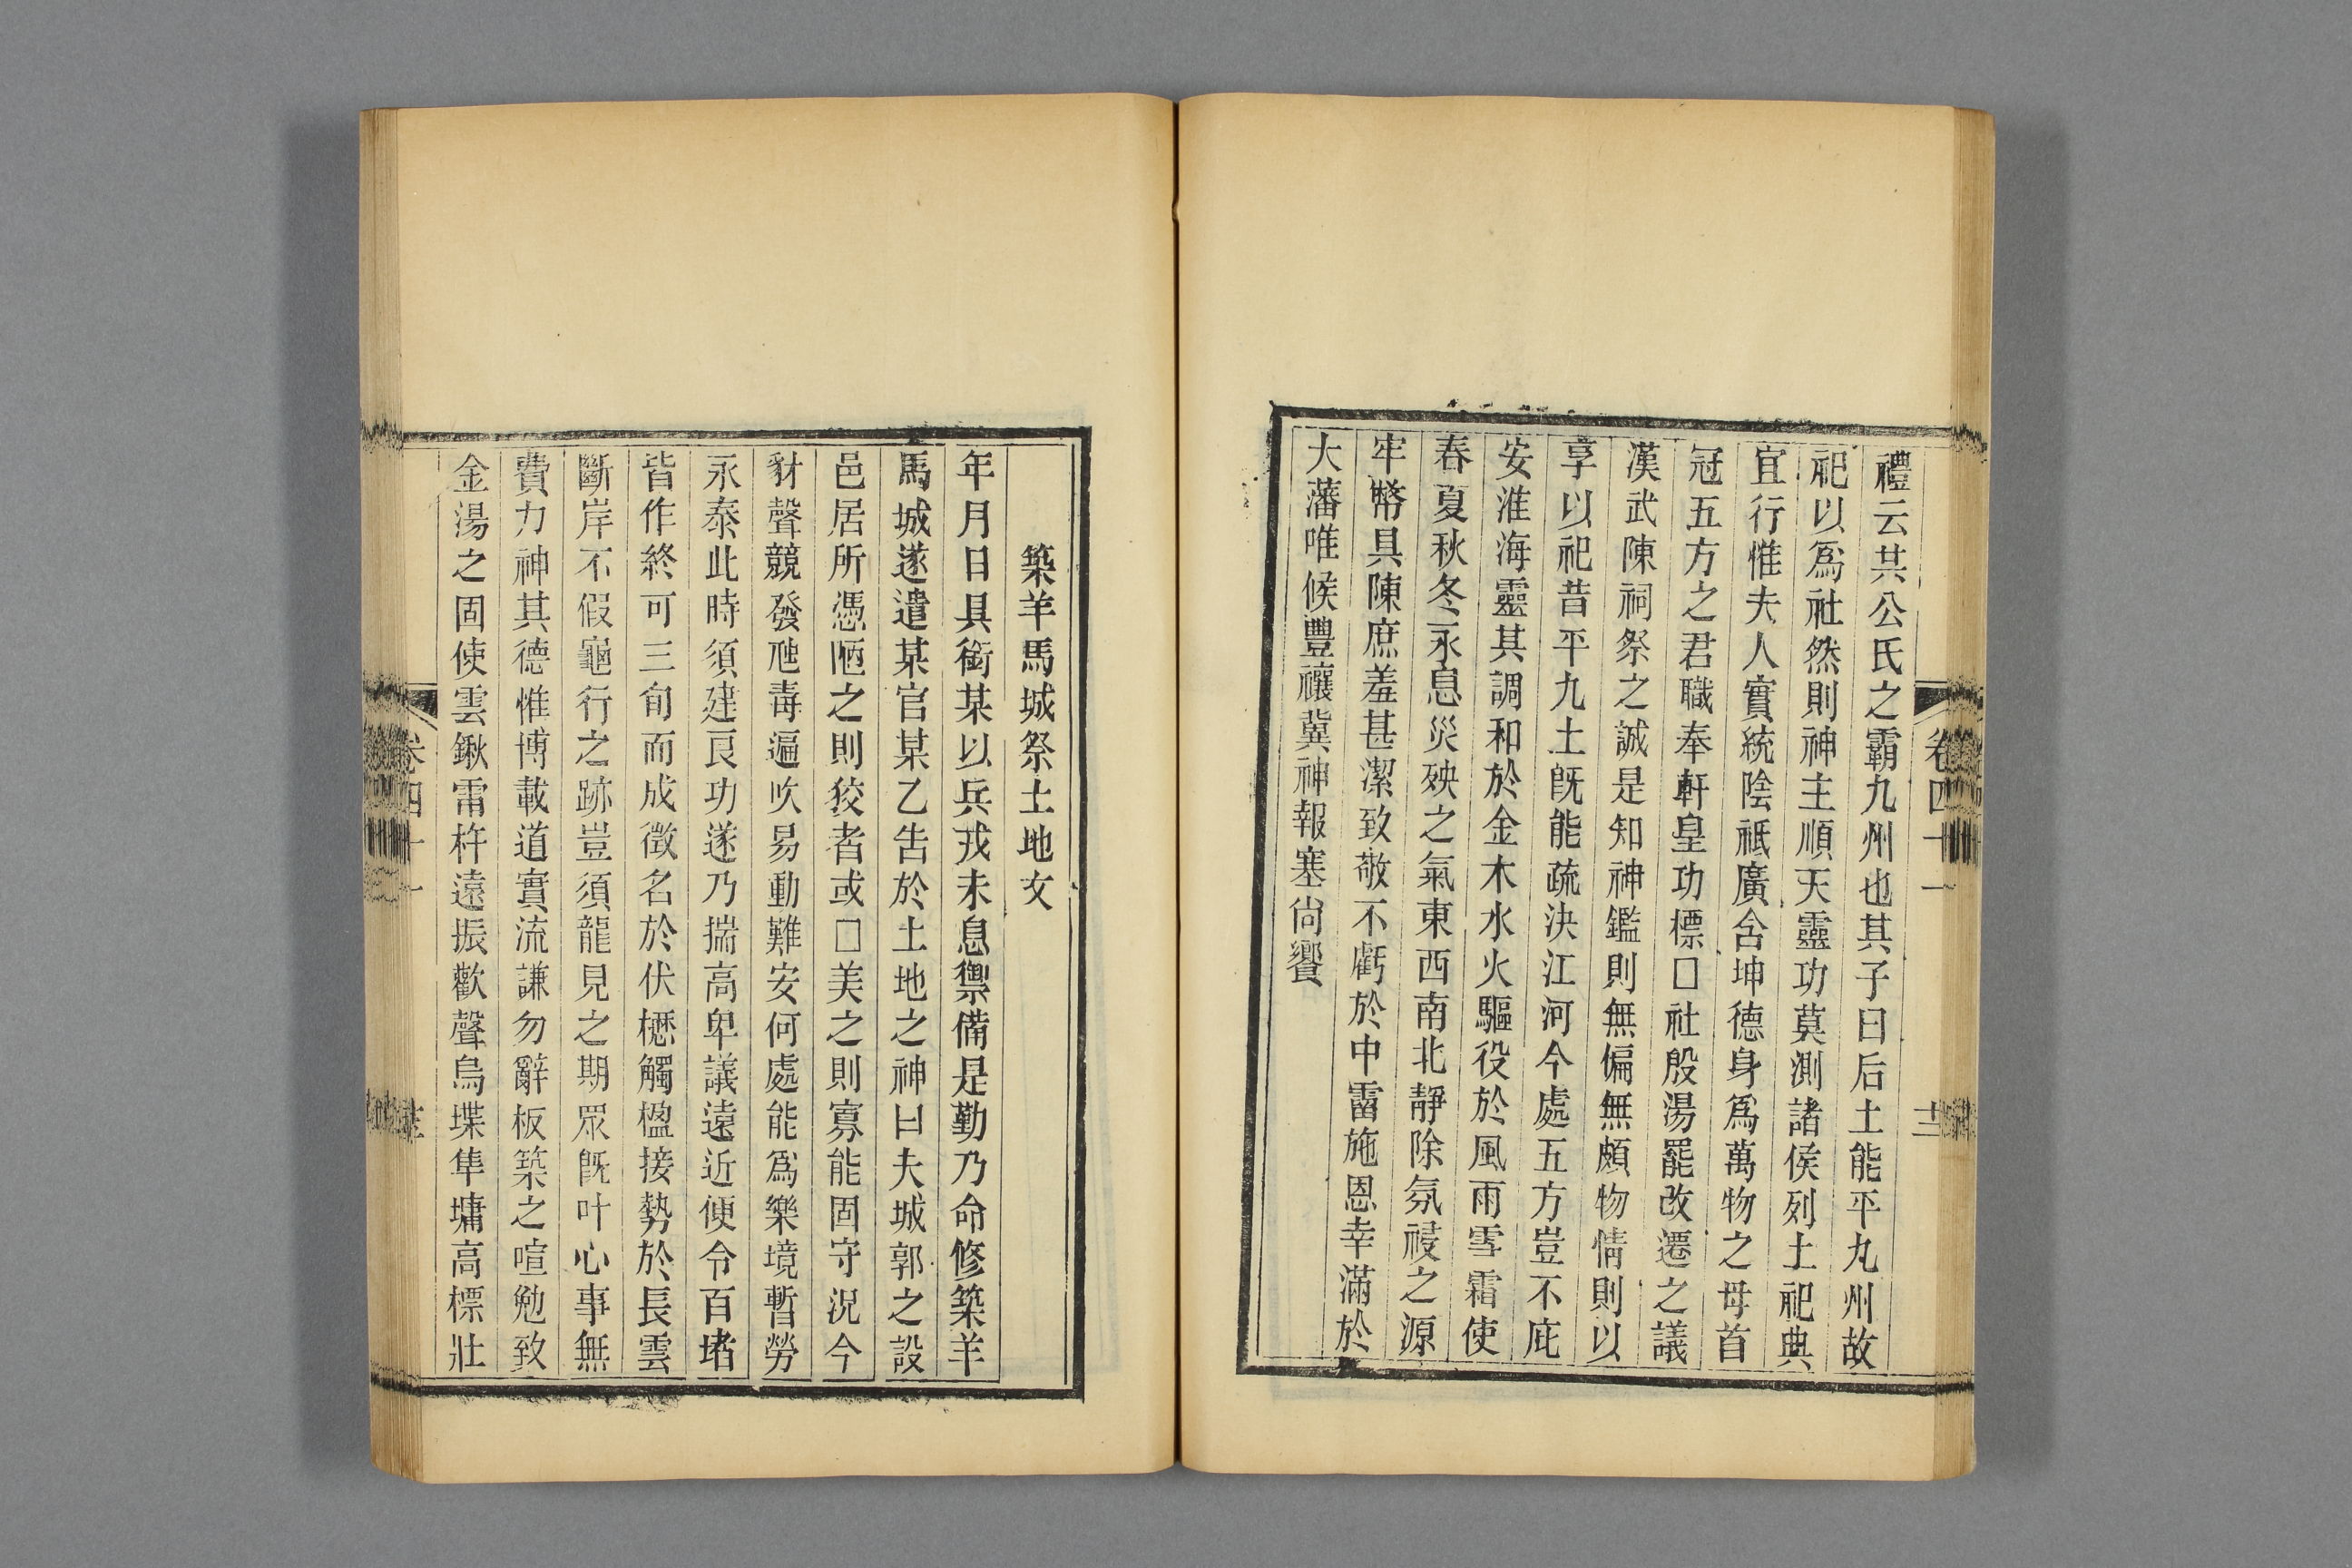 禮云共公氏之霸九州也其子曰后土能平九州故
祀以爲社然則神主順天靈功莫測諸侯列土祀典
宜行惟夫人實統陰祗廣含坤德身爲萬物之母首
冠五方之君職奉軒皇功標□社殷湯罷改遷之議
漢武陳祠祭之誠是知神鑑則無偏無頗物情則以
享以祀昔平九土旣能疏決江河今處五方豈不庇
安淮海靈其調和於金木水火驅役於風雨雪霜使
春夏秋冬永息災殃之氣東西南北靜除氛祲之源
牢幣具陳庶羞甚潔致敬不虧於中霤施恩幸滿於
大藩唯候豐禳冀神報塞尙饗
卷四十一
十二
築羊馬城祭土地文
年月日具銜某以兵戎未息禦備是勤乃命修築羊
馬城遂遣某官某乙告於土地之神曰夫城郭之設
邑居所憑陋之則狡者或□美之則寡能固守況今
豺聲競發虺毒遍吹易動難安何處能爲樂境暫勞
永泰此時須建良功遂乃揣高卑議遠近便令百堵
皆作終可三旬而成徵名於伏櫪觸楹接勢於長雲
斷岸不假龜行之跡豈須龍見之期眾旣叶心事無
費力神其德惟博載道實流謙勿辭板築之喧勉致
金湯之固使雲鍬雷杵遠振歡聲烏堞隼墉高標壯
卷四十一